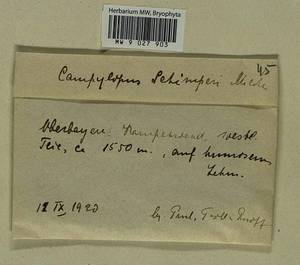 Herbarium MW, Bryophyta
MW 9 027 903
45
Campylopus Schimperi Milde
Oberbayern: Kampenwand, westl.
Teil, ca 1550 m., auf humosem
Lehm.
12 IX 1920